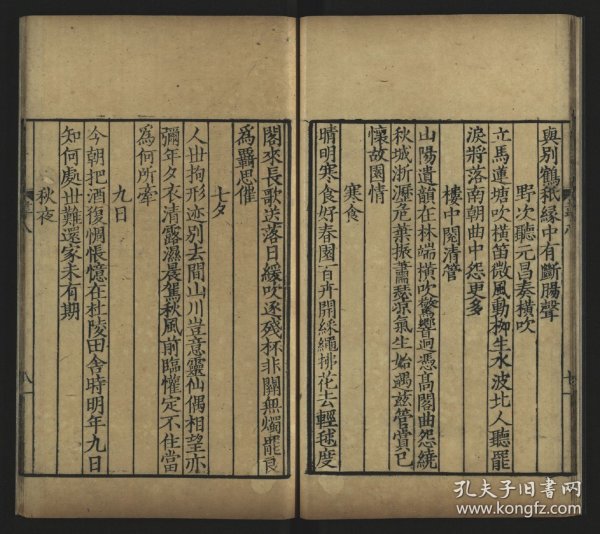 與別鶴秖緣中有斷腸聲
野次聽元昌奏橫吹
立馬蓮塘吹橫笛微風動柳生水波北人聽罷
淚將落南朝曲中怨更多
樓中閱清管
山陽遺韻在林端橫吹驚響迥憑高閣曲怨繞
秋城淅瀝危葉振蕭瑟凉氣生始遇茲管賞已
懷故園情
寒食
晴明寒食好春園百卉開綵繩拂花去輕毬度
閣來長歌送落日緩吹逐殘杯非關無燭罷良
為羇思催
七夕
人世拘形迹別去間山川豈意靈仙偶相望亦
彌年夕衣清露濕晨駕秋風前臨懽定不住當
為何所牽
九日
今朝把酒復惆悵憶在杜陵田舍時明年九日
知何處世難還家未有期
秋夜
八
七
孔夫子旧书网
www.kongfz.com